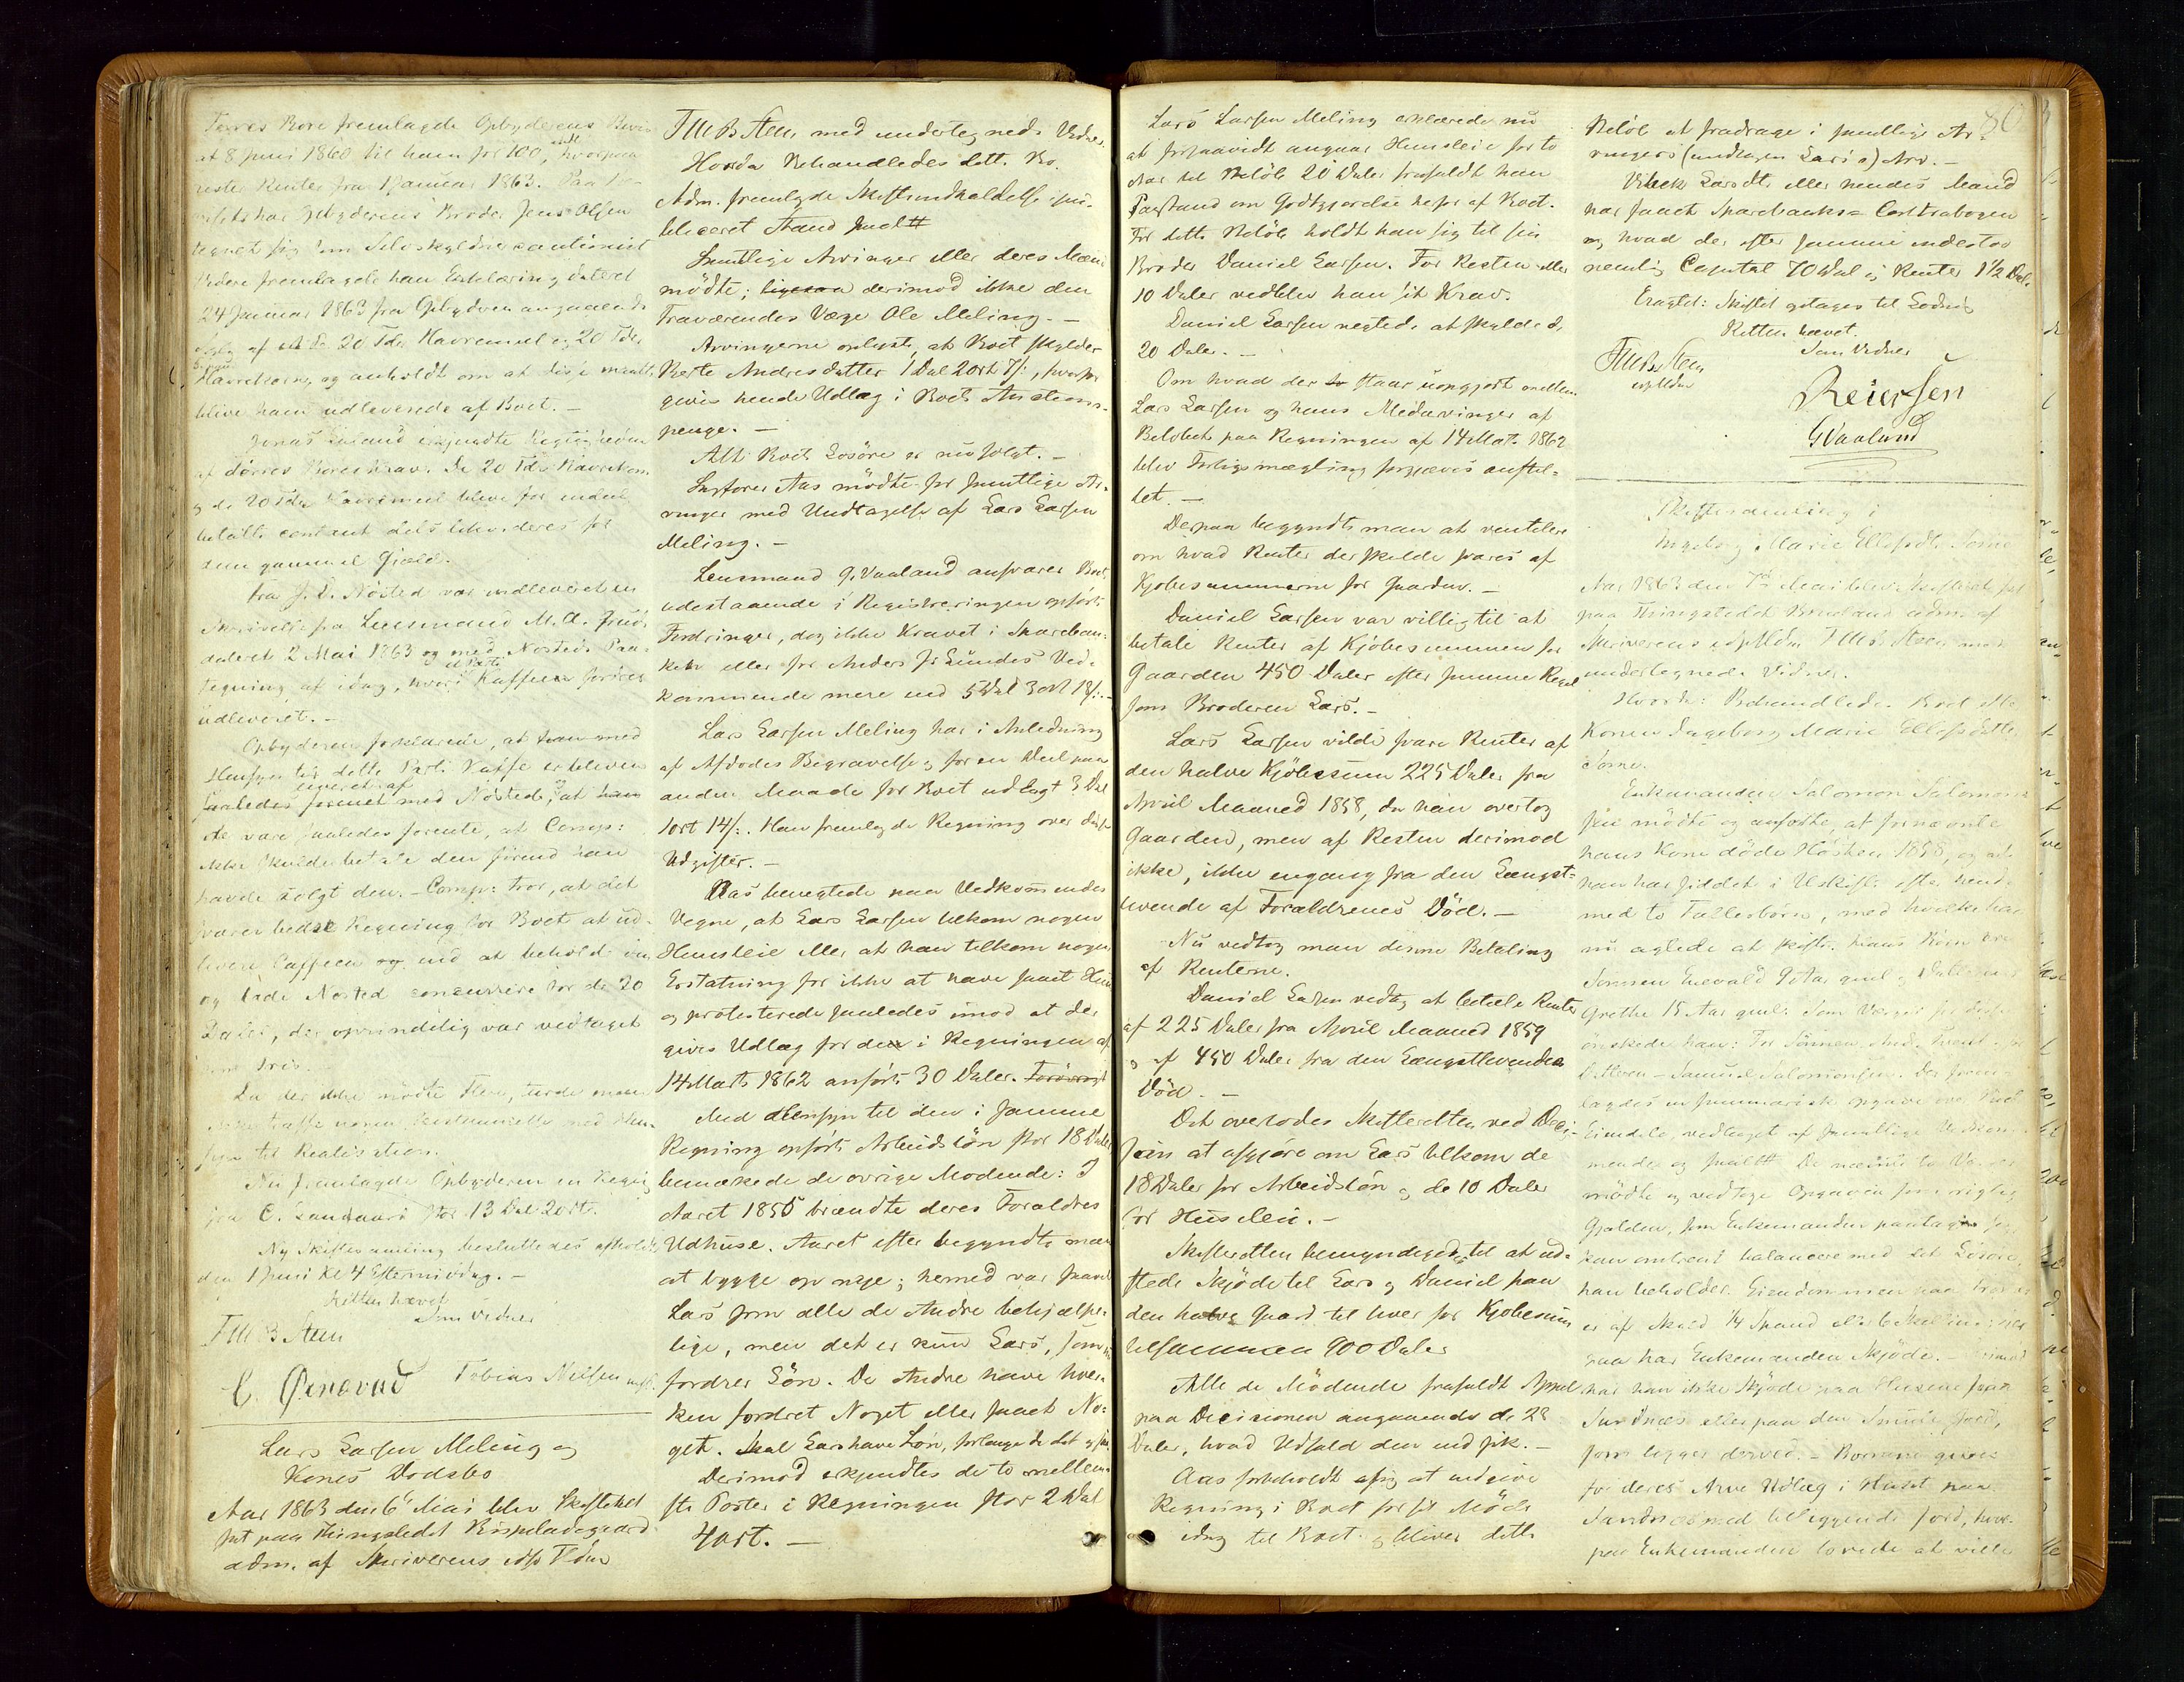 Tørres Bore fremlagde Opbyderens Bevis
af 8 Juni 1860 til ham for 100, hvorpaa
rester Renter fra Januar 1863. Paa
har Opbyderens Broder Jens Olsen
tegnet sig som Selvskyldnercautionist
Videre fremlagde han Erklæring dateret
24 Januar 1863 fra Opbyderen angaaende
af 20 Tdr Havremeel og 20 Tdr
Havrekorn, og anholdt om at disse maatte
blive ham udleverede af Boet. –
Jonas erkjendte Rigtigheden
af Tørres Bores Krav. De 20 Tdr Havrekorn
og de 20 Tdr Havremeel bleve for endeel
betalte contant dels likvideres for
den gammel Gjæld.
Fra Nøsted var indleveret en
Skrivelse fra Lensmand M. A.
dateret 2 Mai 1863 og med Nøsteds Paa-
tegning af idag, hvori Kaffeen fordres
udleveret. –
Opbyderen forklarede, at han med
Hensyn til dette Parti Kaffe er bleven
saaledes forenet med Nøsted, at han
de vare saaledes forente, at Comp:
ikke skulde betale den førend han
havde solgt den. – Comp: tror, at det
være bedst Regning for Boet at ud-
levere Caffeen end at beholde den
og lade Nøsted concurrere for de 20
Daler, der oprindelig var vedtaget
som Priis.
Da der ikke mødte Flere, turde man
ikke træffe nogen Bestemmelse med Hen-
syn til Realisation.
Nu fremlagde Opbyderen en Regning
fra C. Sandaard stor 13 Dal 2 ort.
Ny Skiftesamling besluttedes afholdt
den 1 Juni Kl 4 Eftermiddag. –
Retten hævet
Som Vidner
F M B Steen
C. Tobias Nielsen
Lars Larsen Meling og
Kones Dødsbo
Aar 1863 den 6 Mai blev Skifteret
sat paa Thingstedet Bispeladegaard
adm. af Skriverens edsv Fldm
F M B Steen med undertegnede Vidner.
Hvorda Behandledes dette Bo.
Adm. fremlagde Skifteindkaldelse i pu-
bliceret Stand
Samtlige Arvinger eller deres Mænd
mødte; ligesaa derimod ikke den
Fraværendes Værge Ole Meling. –
Arvingerne oplyste, at Boet skylder
Berte Andresdatter 1 Dal 2 ort 7/:, hvorfor
gives hende Udlæg i Boets Auctions-
penge. –
Alt Boets Løsøre er nu solgt. –
Sagfører Aas mødte for samtlige Ar-
vinger med Undtagelse af Lars Larsen
Meling. –
Lensmand G. Vaaland ansvarer Boets
udestaaende i Registreringen opførte
Fordringer, dog ikke Kravet i Sparebank-
ken eller for Anders J. Lundes Ved-
kommende mere end 5 Dal 3 ort 18/. –
Lars Larsen Meling har i Anledning
af Afdødes Begravelse og for en Deel paa
anden Maade for Boet udlagt 3 Dal
1 ort 14/:. Han fremlagde Regning over disse
Udgifter. –
Aas benegtede paa Vedkommendes
Vegne, at Lars Larsen tilkom nogen
Huusleie eller at han tilkom nogen
Erstatning for ikke at have faaet Huus
og protesterede saaledes imod at der
gives Udlæg for den i Regningen af
14 Marts 1862 anførte 30 Daler. Forøvrigt
Med Hensyn til den i samme
Regning opførte Arbeidsløn stor 18 Daler,
bemærkede de øvrige Mødende: I
Aaret 1855 brændte deres Forældres
Udhuse. Aaret efter begyndte man
at bygge op nye; hermed var saavel
Lars som alle de Andre behjælpe-
lige, men det er kun Lars, som
fordrer Løn. De Andre have hver-
ken fordret Noget eller faaet No-
get. Skal Lars have Løn, forlange de det og saa
Derimod erkjendtes de to mellem-
ste Poster i Regningen stor 2 Dal
4 ort. –
Lars Larsen Meling erklærede nu
at forsaavidt angaar Huusleie for to
Aar til Beløb 20 Daler frafaldt han
Paastand om Godtgjørelse herfor af Boet.
For dette Beløb holdt han sig til sin
Broder Daniel Larsen. For Resten eller
10 Daler vedblev han sit Krav.
Daniel Larsen negtede at skylde de
20 Daler. –
Om hvad der staar uopgjort mellem
Lars Larsen og hans Medarvinger af
Beløbet paa Regningen af 14 Mart. 1862
blev Forligsmægling forgjæves anstil-
let. –
Derpaa begyndte man at ventilere
om hvad Renter der skulde svares af
Kjøbesummerne for Gaarden. –
Daniel Larsen var villig til at
betale Renter af Kjøbesummen for
Gaarden 450 Daler efter samme Regel
som Broderen Lars. –
Lars Larsen vilde svare Renter af
den halve Kjøbesum 225 Daler fra
April Maaned 1858, da han overtog
Gaarden, men af Resten derimod
ikke, ikke engang fra den Længst-
levende af Forældrenes Død. –
Nu vedtog man denne Betaling
af Renterne.
Daniel Larsen vedtog at betale Renter
af 225 Daler fra April Maaned 1859
og af 450 Daler fra den Længstlevendes
Død. –
Det overlodes Skifteretten ved Deci-
sion at afgjøre om Lars tilkom de
18 Daler for Arbeidsløn og de 10 Daler
for Huusleie. –
Skifteretten bemyndigedes til at ud-
stede Skjøde til Lars og Daniel paa
den halve Gaard til hver for Kjøbesum
tilsammen 900 Daler
Alle de Mødende frafaldt Appel
paa Decisionen angaaende de 28
Daler, hvad Udfald den end fik. –
Aas forbeholdt sig at indgive
Regning i Boet for sit Møde
idag til Boet og bliver dette
80
Beløb at fradrage i samtlige Ar-
vingers (undtagen Lars's) Arv. –
Vibeke Larsdtr eller hendes Mand
har faaet Sparebanks= Contrabogen
og hvad der efter samme indestod
nemlig Capital 70 Dal og Renter 1½ Dal.
Eragtet: Skiftet optages til Lodning
Retten hævet
Som Vidner
F M B Steen
Reiersen
G Vaaland
Skiftesamling i
Ingeborg Marie Ellefsdtr
Aar 1863 den 7de Mai blev Skifteret sat
paa Thingstedet adm. af
Skriverens edsv Fldm F M B Steen med
undertegnede Vidner.
Hvorda: Behandledes Boet efter
Konen Ingeborg Marie Ellefsdatter
Enkemanden Salomon Salomon-
sen mødte og anførte, at fornævnte
hans Kone døde Høsten 1858, og at
han har siddet i Uskifte efter hende
med to Fællesbørn, med hvilke han
nu agtede at skifte. Hans Børn ere
Sønnen Enevald 9 Aar gml og Datteren
Grethe 15 Aar gml. Som Værger for disse
ønskede han: For Sønnen
Datteren – Samuel Salomonsen. Der frem-
lagdes en summarisk Opgave over Boets
Eiendele vedtaget af samtlige Vedkom-
mende og De nævnte to Værger
mødte og vedtoge Opgaven som rigtig
Gjælden, som Enkemanden paatager sig,
kan omtrent balancere med det Løsøre,
han beholder. Eiendommen paa
er af Skyld ¼ Spand
paa har Enkemanden Skjøde. –
har han ikke Skjøde paa Husene paa
Sandnæs eller paa den Smule Jord,
som ligger derved. – Børnene gives
for deres Arv Udlæg i Huset paa
Sandnæs med tilliggende Jord, hvor-
paa Enkemanden lovede at ville